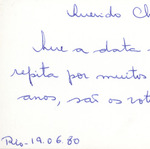 Querido Ch
que a data
repita por muitos
anos, são os vot
Rio-19.06.80